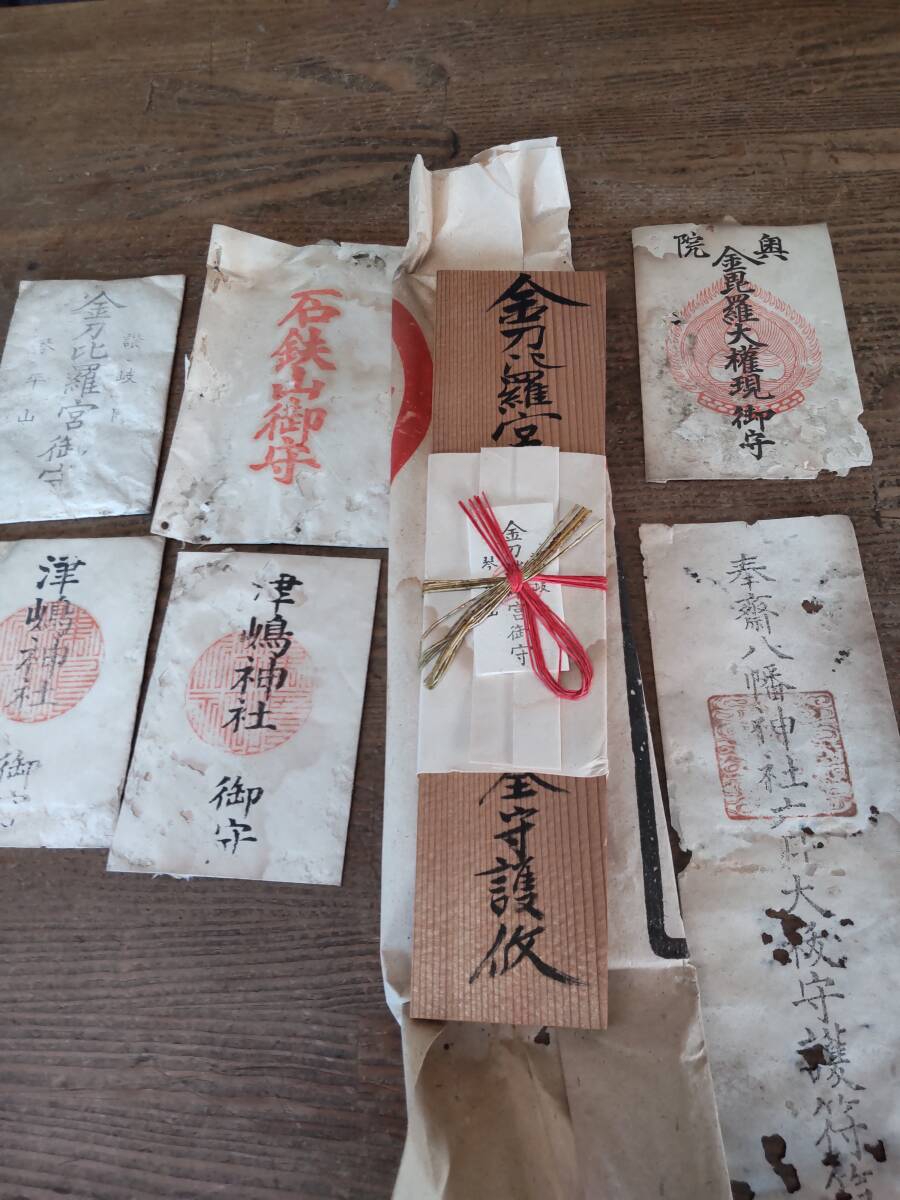 金刀比羅宮御守
讃岐
琴平山
石鉄山御守
金刀比羅宮
金刀
宮御守
琴
全守護攸
奥院
金毘羅大権現御守
津嶋神社
御守
津嶋神社
御守
奉齋八幡神社
大祓守護符